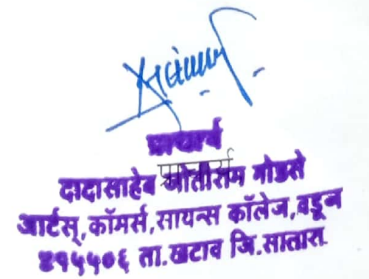 प्राचार्य
प्राचार्य
दादासाहेब जोतीराम गोडसे
आर्टस्,कॉमर्स,सायन्स कॉलेज,वडूज
४१५५०६ ता.खटाव जि.सातारा